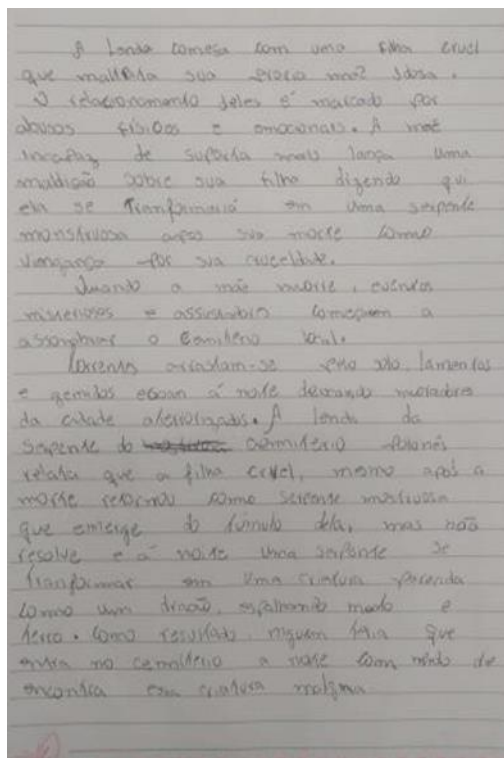 A Lenda comesa com uma filha cruel
que maltrata sua propria mãe Idosa.
O relacionamento deles é marcado por
abusos físicos e emocionais. A mãe
incapaz de suporta mais lança uma
maldição sobre sua filha dizendo qui
ela se Tranformará em uma serpente
monstruosa apos sua morte como
vingança por sua crueldade.
Quando a mãe morre, eventos
misteriosos e assustadores começam a
assombrar o Cemitério local.
Correntes arrastam-se pelo são, lamentos
e gemidos ecoan á noite deixando moradores
da cidade aterrorizados. A lenda da
serpente do cermiterio polonês
relata que a filha cruel, mesmo após a
morte retornou como serpente mostruosa
que emerge do túmulo dela, mas não
resolve e á noite uma serpente se
Tranformar em uma criatura parecida
como um dragão, espalhando medo e
terro. Como resultado, niguem fala que
entra no cemitério a noite com medo de
encontra essa criatura maligna